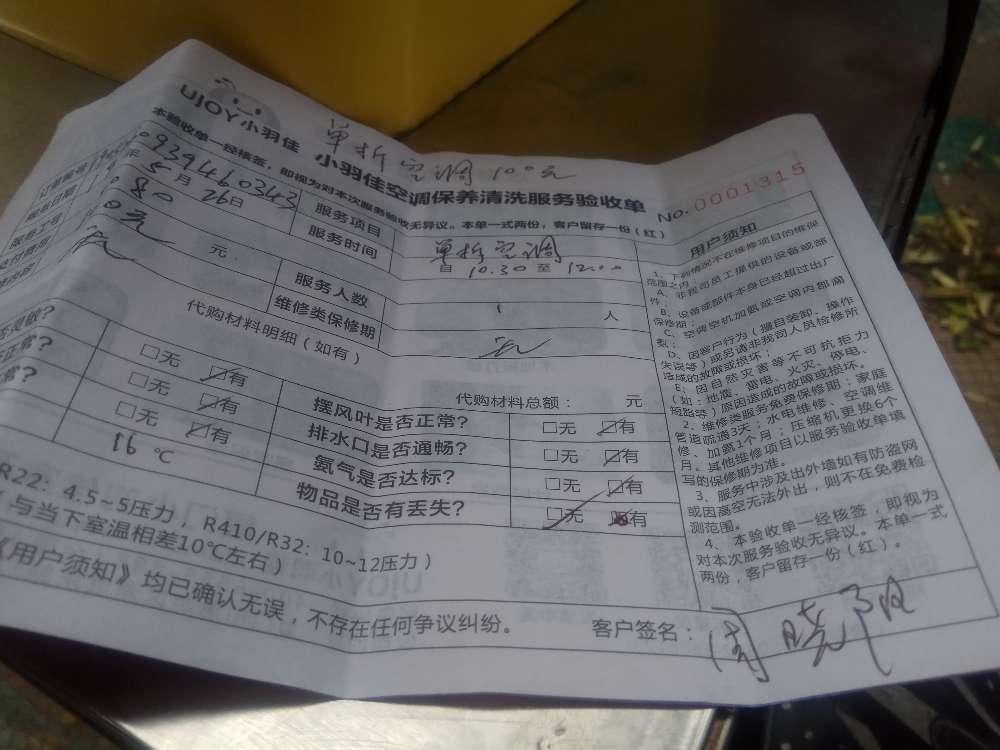 UJOY小羽佳
单拆空调100元
小羽佳空调保养清洗服务验收单
No.0001315
本验收单一经核签，即视为对本次服务验收无异议。本单一式两份，客户留存一份（红）
0939460343
服务项目
单拆空调
年5月26日
服务时间
自10.30至12:00
80
元
服务人数
1
人
维修类保修期
无
代购材料明细（如有）
代购材料总额：
元
□无 □有
摆风叶是否正常？
□无 □有
□无 □有
排水口是否通畅？
□无 □有
□无 □有
氨气是否达标？
□无 □有
16℃
物品是否有丢失？
□无 □有
R22：4.5~5压力，R410/R32：10~12压力）
（与当下室温相差10℃左右）
《用户须知》均已确认无误，不存在任何争议纠纷。
客户签名：
用户须知
1、下列情况不在维修项目的维保
范围之内：
A、非我司员工提供的设备或部
件；
B、设备或部件本身已经超过出厂
保修期；
C、空调空机加氨或空调内部腐
D、因客户行为（擅自装卸，操作
失误等）或另请非我司人员检修所
造成的故障或损坏；
E、因自然灾害等不可抗拒力
（如：地震、雷电、火灾、停电、
短路等）原因造成的故障或损坏。
2、维修类服务免费保修期：家庭
管道疏通3天；水电维修、空调维
修、加氨1个月；压缩机更换6个
月。其他维修项目以服务验收单填
写的保修期为准。
3、服务中涉及出外墙如有防盗网
或因高空无法外出，则不在免费检
测范围。
4、本验收单一经核签，即视为
对本次服务验收无异议。本单一式
两份，客户留存一份（红）。